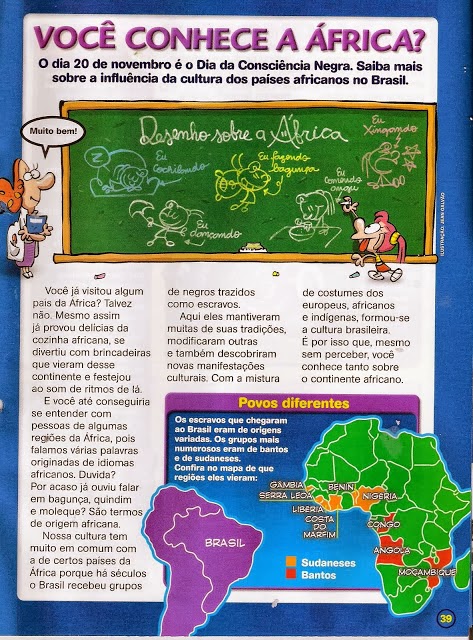 VOCÊ CONHECE A ÁFRICA?
O dia 20 de novembro é o Dia da Consciência Negra. Saiba mais
sobre a influência da cultura dos países africanos no Brasil.
Muito bem!
Desenho sobre a África
Eu
Xingando
Eu
Cochilando
Eu fazendo
bagunça
Eu
comendo
angu
Eu
dançando
ILUSTRAÇÃO: JEAN GALVÃO
Você já visitou algum
país da África? Talvez
não. Mesmo assim
já provou delícias da
cozinha africana, se
divertiu com brincadeiras
que vieram desse
continente e festejou
ao som de ritmos de lá.
E você até conseguiria
se entender com
pessoas de algumas
regiões da África, pois
falamos várias palavras
originadas de idiomas
africanos. Duvida?
Por acaso já ouviu falar
em bagunça, quindim
e moleque? São termos
de origem africana.
Nossa cultura tem
muito em comum com
a de certos países da
África porque há séculos
o Brasil recebeu grupos
de negros trazidos
como escravos.
Aqui eles mantiveram
muitas de suas tradições,
modificaram outras
e também descobriram
novas manifestações
culturais. Com a mistura
de costumes dos
europeus, africanos
e indígenas, formou-se
a cultura brasileira.
É por isso que, mesmo
sem perceber, você
conhece tanto sobre
o continente africano.
Povos diferentes
Os escravos que chegaram
ao Brasil eram de origens
variadas. Os grupos mais
numerosos eram de bantos
e de sudaneses.
Confira no mapa de que
regiões eles vieram:
GÂMBIA
SERRA LEOA
LIBÉRIA
COSTA
DO
MARFIM
BENIN
NIGÉRIA
CONGO
ANGOLA
MOÇAMBIQUE
BRASIL
Sudaneses
Bantos
39